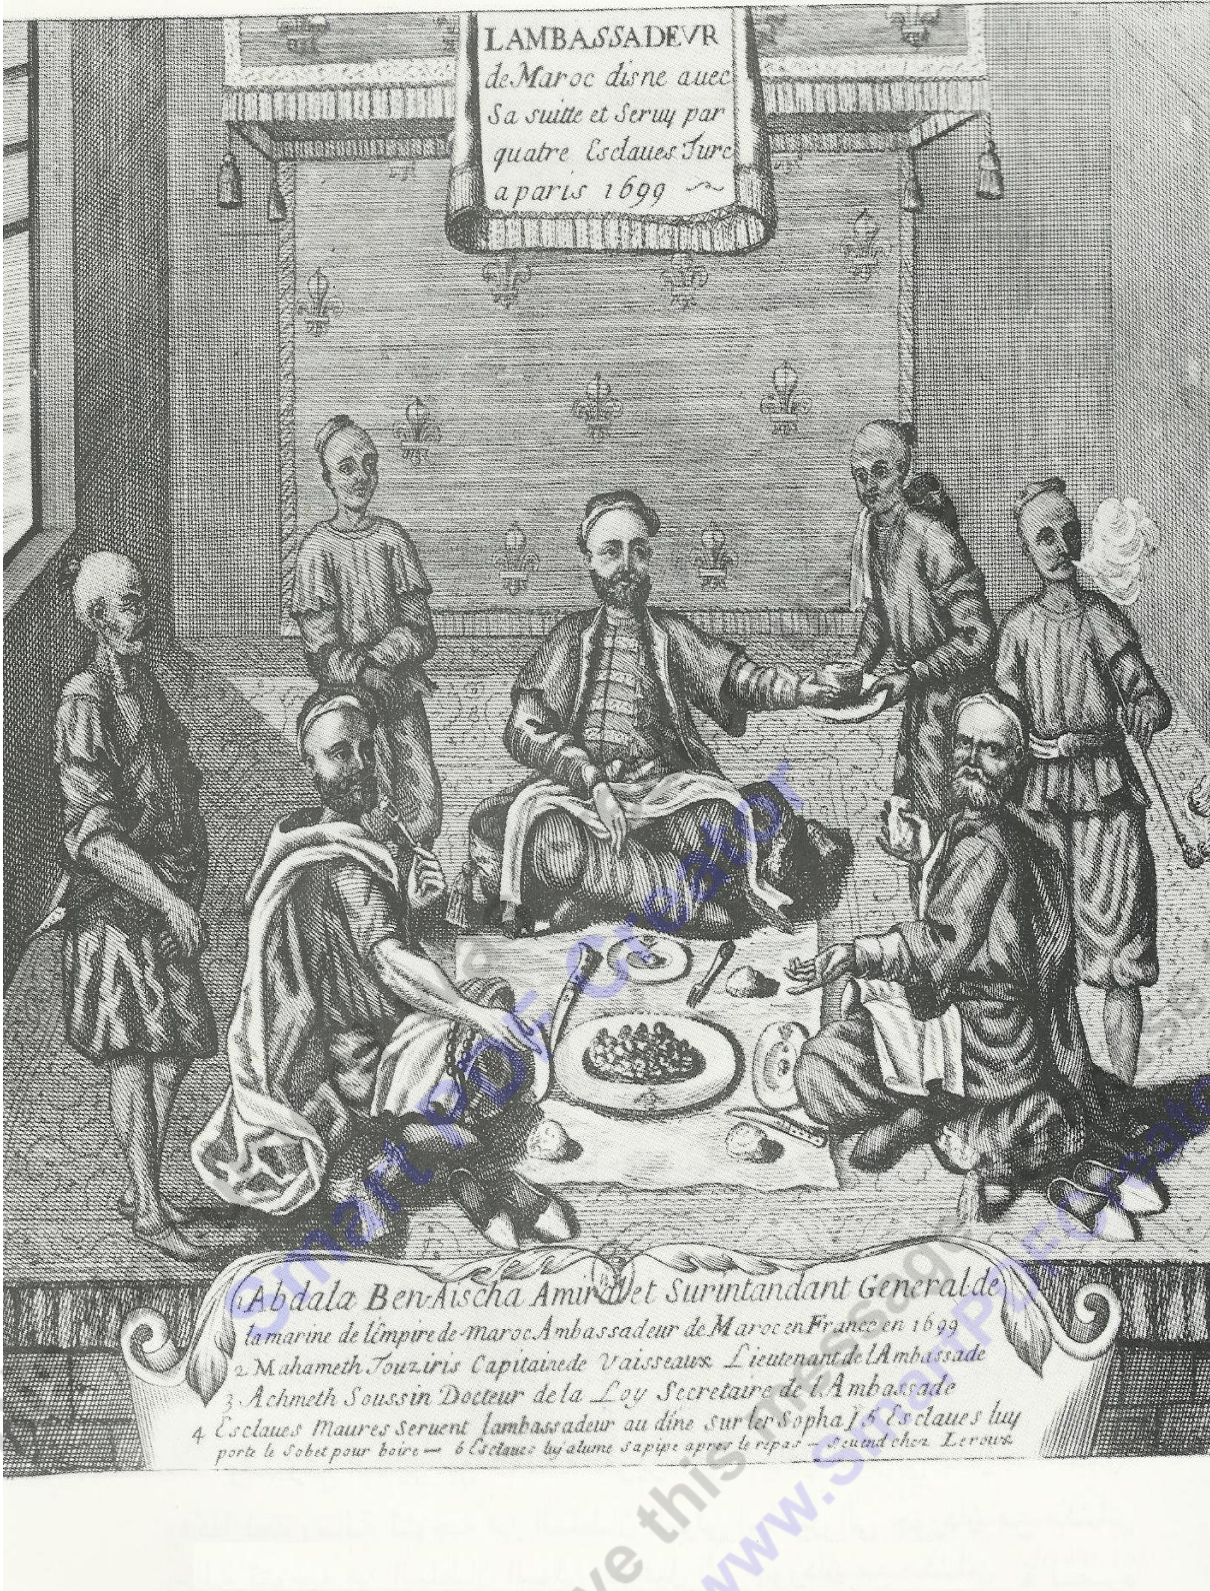 LAMBASSADEVR
de Maroc disne auec
Sa suitte et Seruy par
quatre Esclaues Turc
a paris 1699
1 Abdala Ben-Aischa Amiral et Surintandant General de
la marine de lempire de maroc Ambassadeur de Maroc en France en 1699
2 Mahameth Touziris Capitaine de Vaisseaux Lieutenant de l'Ambassade
3 Achmeth Soussin Docteur de la Loy Secretaire de l'Ambassade
4 Esclaues Maures Seruent lambassadeur au dîne sur ler Sopha 5 Esclaues luy
porte le Sobet pour boire — 6 Esclaues luy alume sa pipe apres le repas — se uend chez Leroux
Smart PDF Creator
ve this message
www.SmartPDFCreator